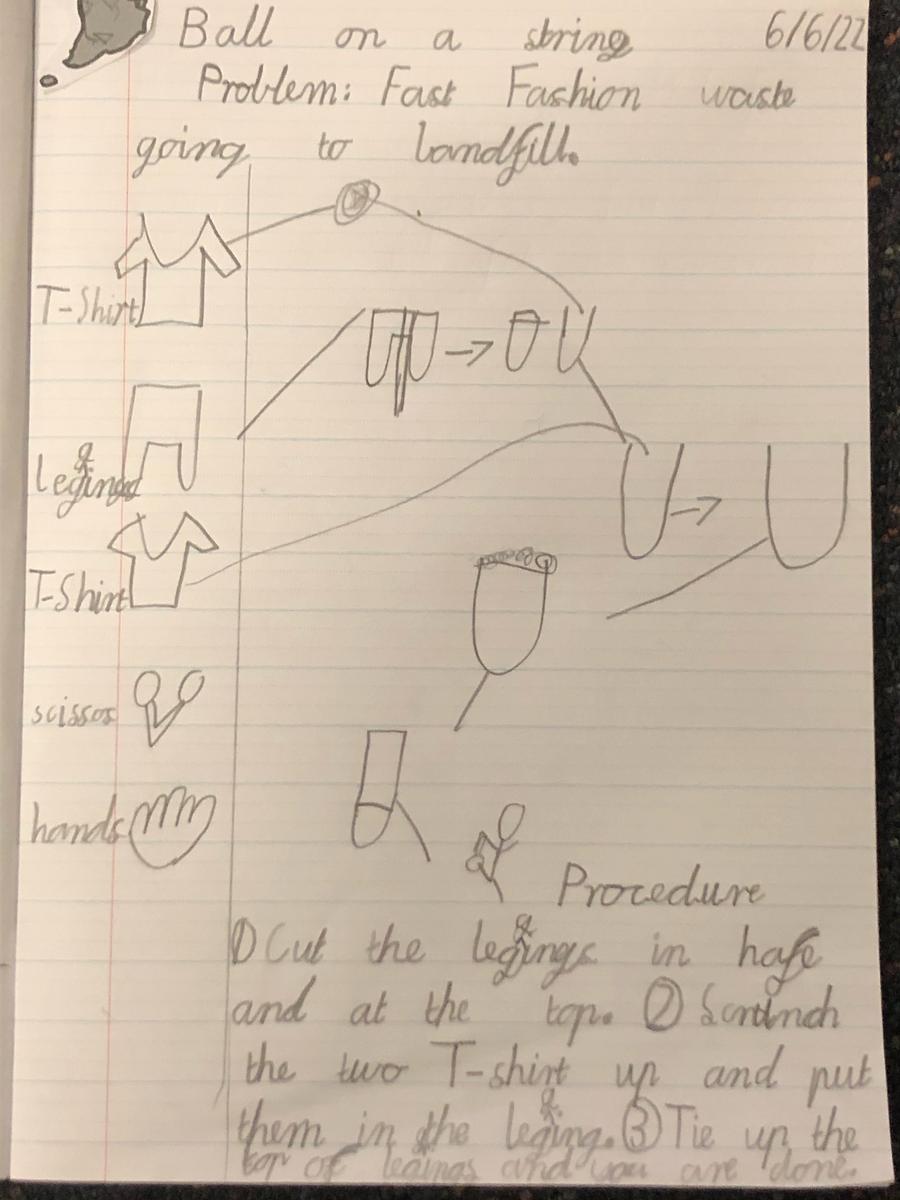 Ball on a string 6/6/22
Problem: Fast Fashion waste
going to landfill.
T-Shirt
leggings
T-Shirt
scissos
hands
Procedure
① Cut the leggings in hafe
and at the top. ②
the two T-shirt up and put
them in the legging. ③ Tie up the
top of legings and you are done.